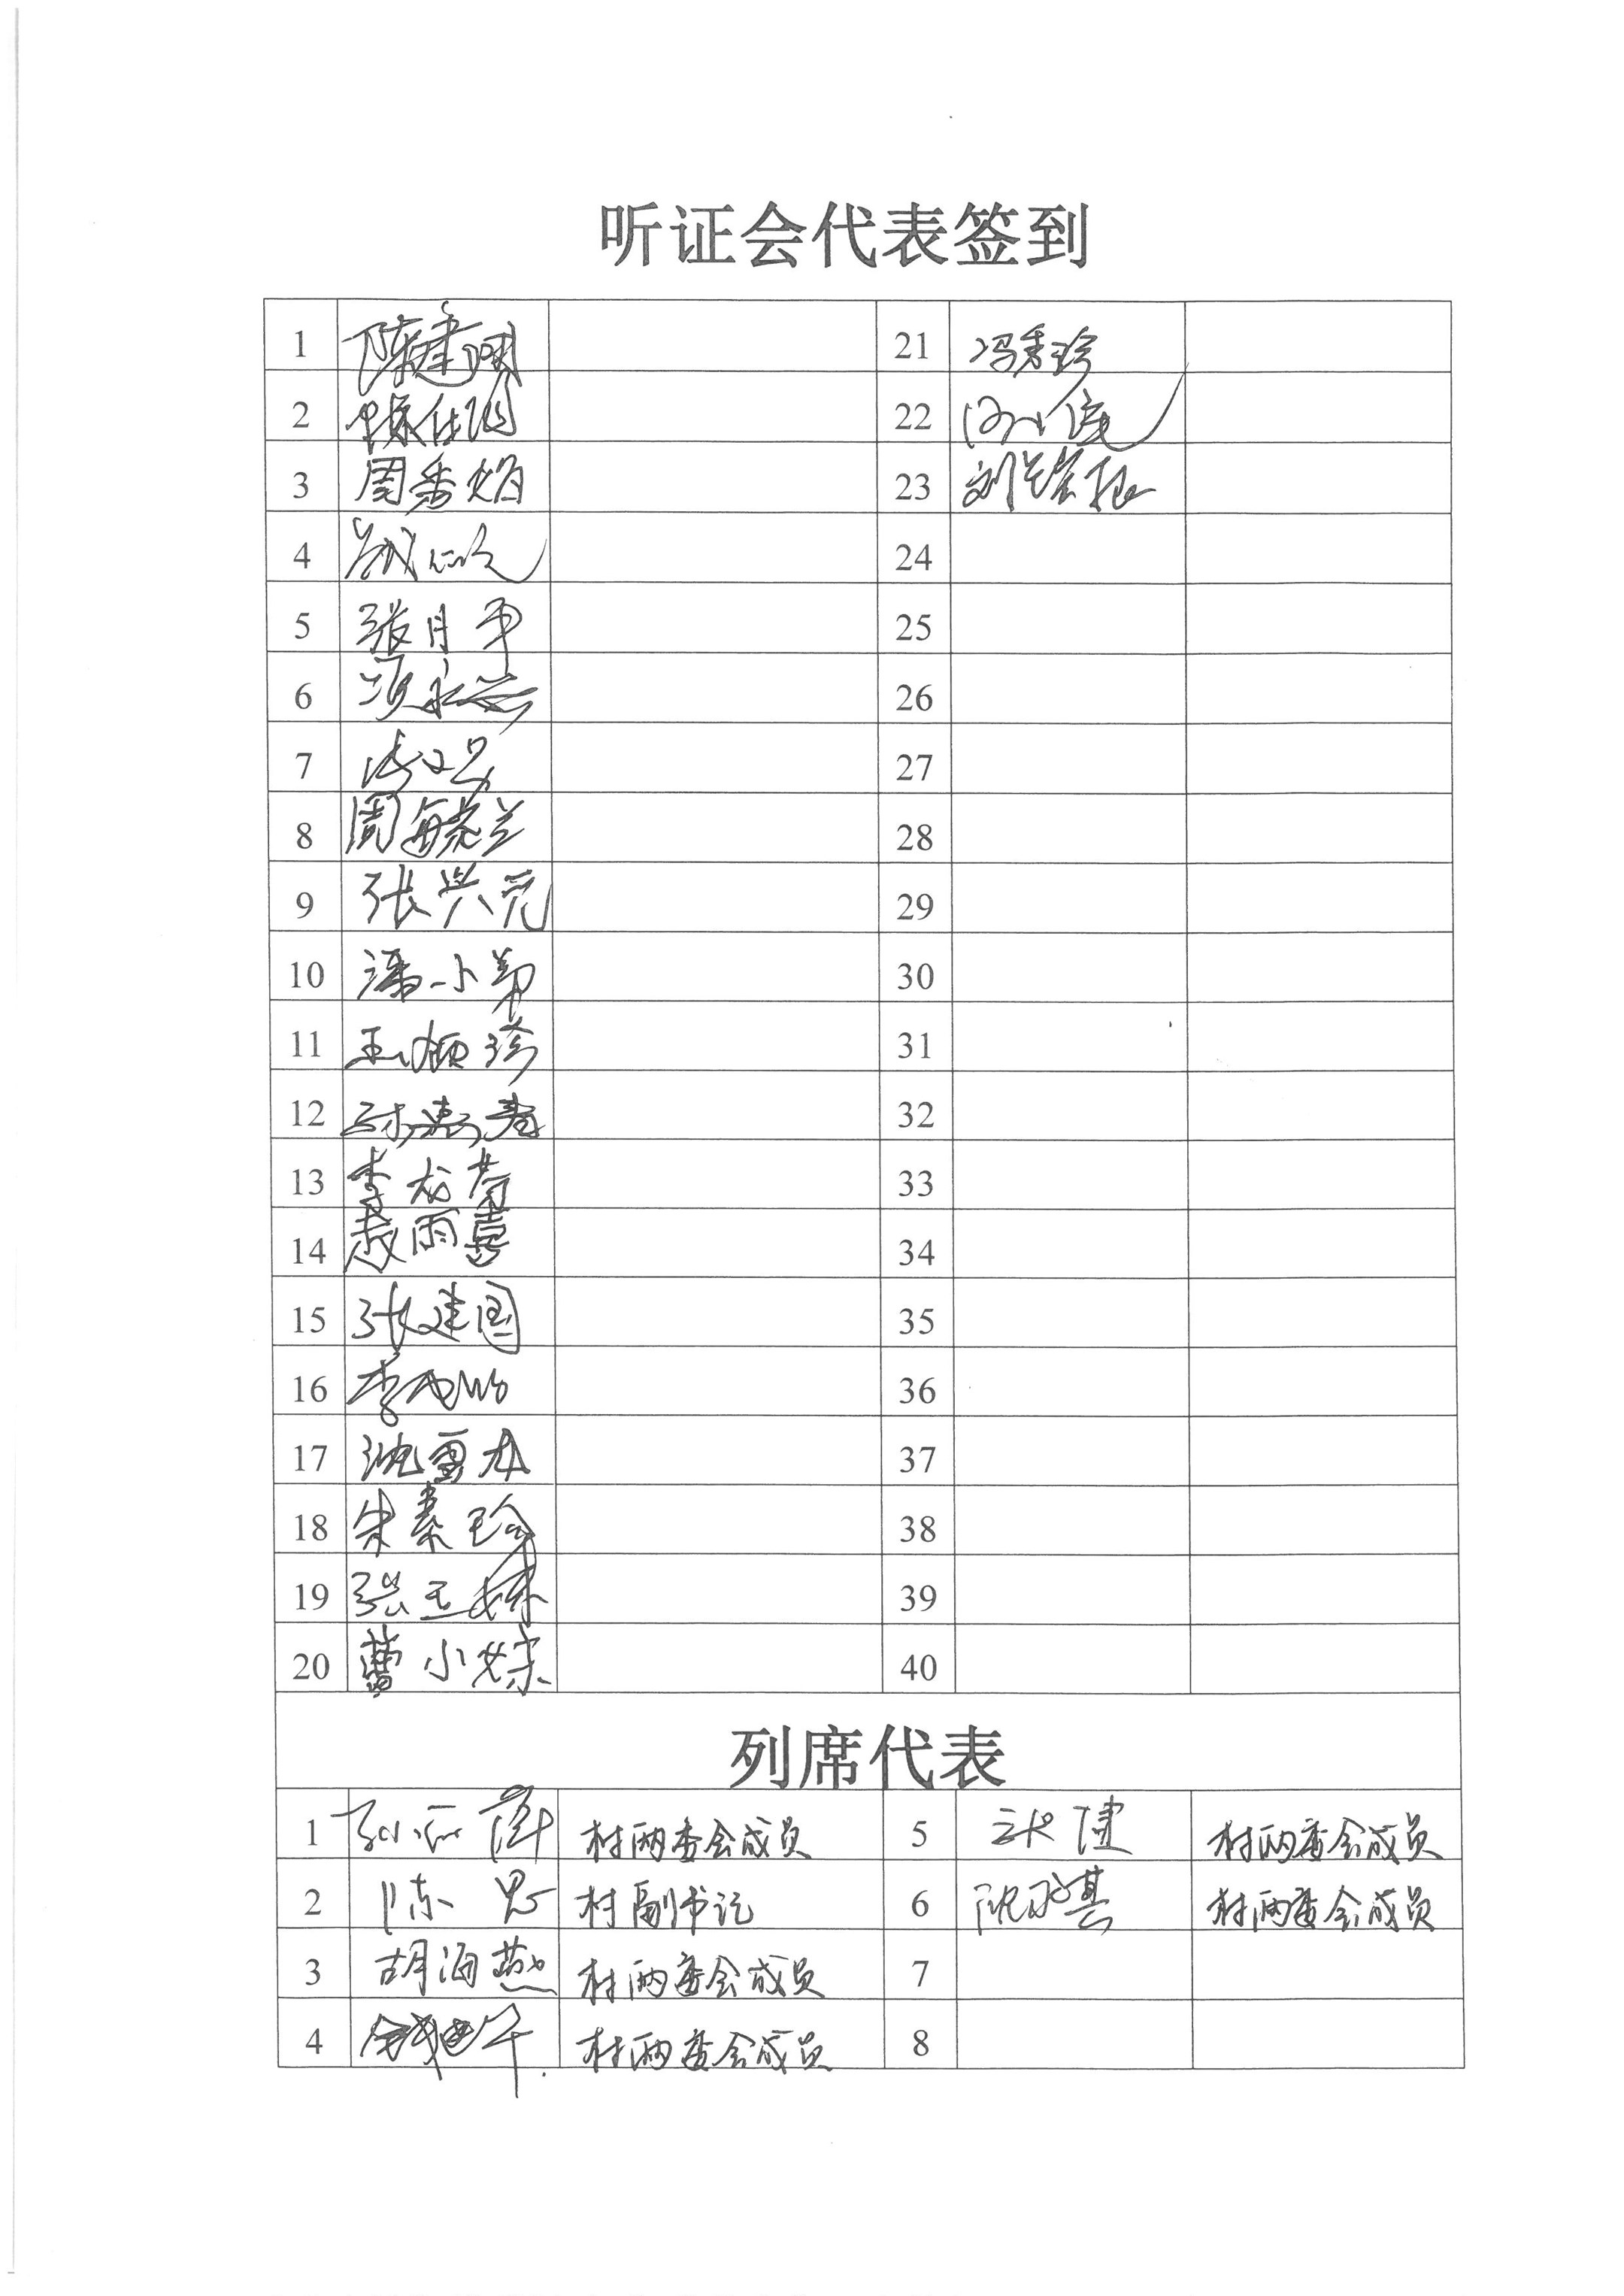 听证会代表签到
1 陈建刚 21 冯秀珍
2 22
3 周香娟 23
4 24
5 张月平 25
6 项永 26
7 27
8 周敏芝 28
9 张兴元 29
10 潘小弟 30
11 王顺珍 31
12 32
13 李龙芳 33
14 赵雨喜 34
15 张建国 35
16 李 36
17 沈雪林 37
18 朱素珍 38
19 张玉妹 39
20 曹小妹 40
列席代表
1 村两委会成员 5 张健 村两委会成员
2 陈思 村副书记 6 村两委会成员
3 胡海燕 村两委会成员 7
4 村两委会成员 8